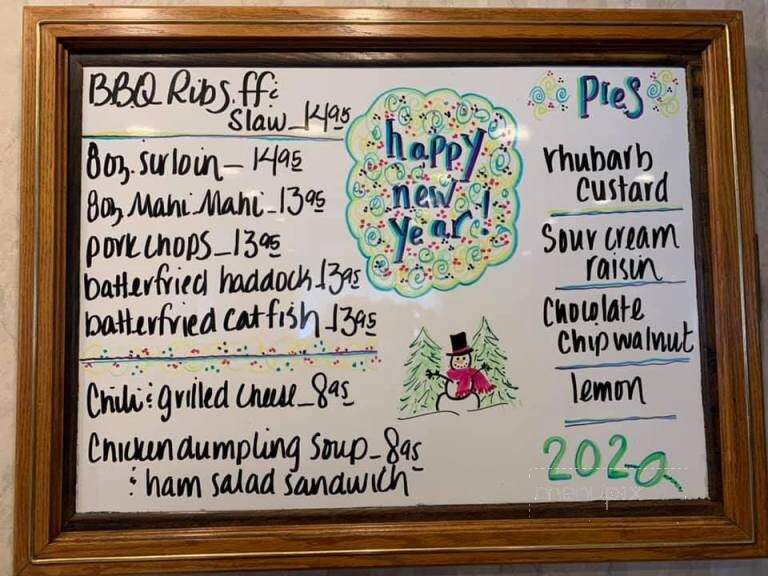 BBQ Ribs. ff &
Slaw - 14.95
8oz. sirloin - 14.95
8oz. Mahi Mahi - 13.95
pork chops - 13.95
batterfried haddock - 13.95
batterfried catfish - 13.95
Chili & grilled cheese - 8.95
Chicken dumpling soup - 8.95
& ham salad sandwich
happy
new
year!
pies
rhubarb
custard
Sour cream
raisin
Chocolate
chip walnut
lemon
2020
menupix